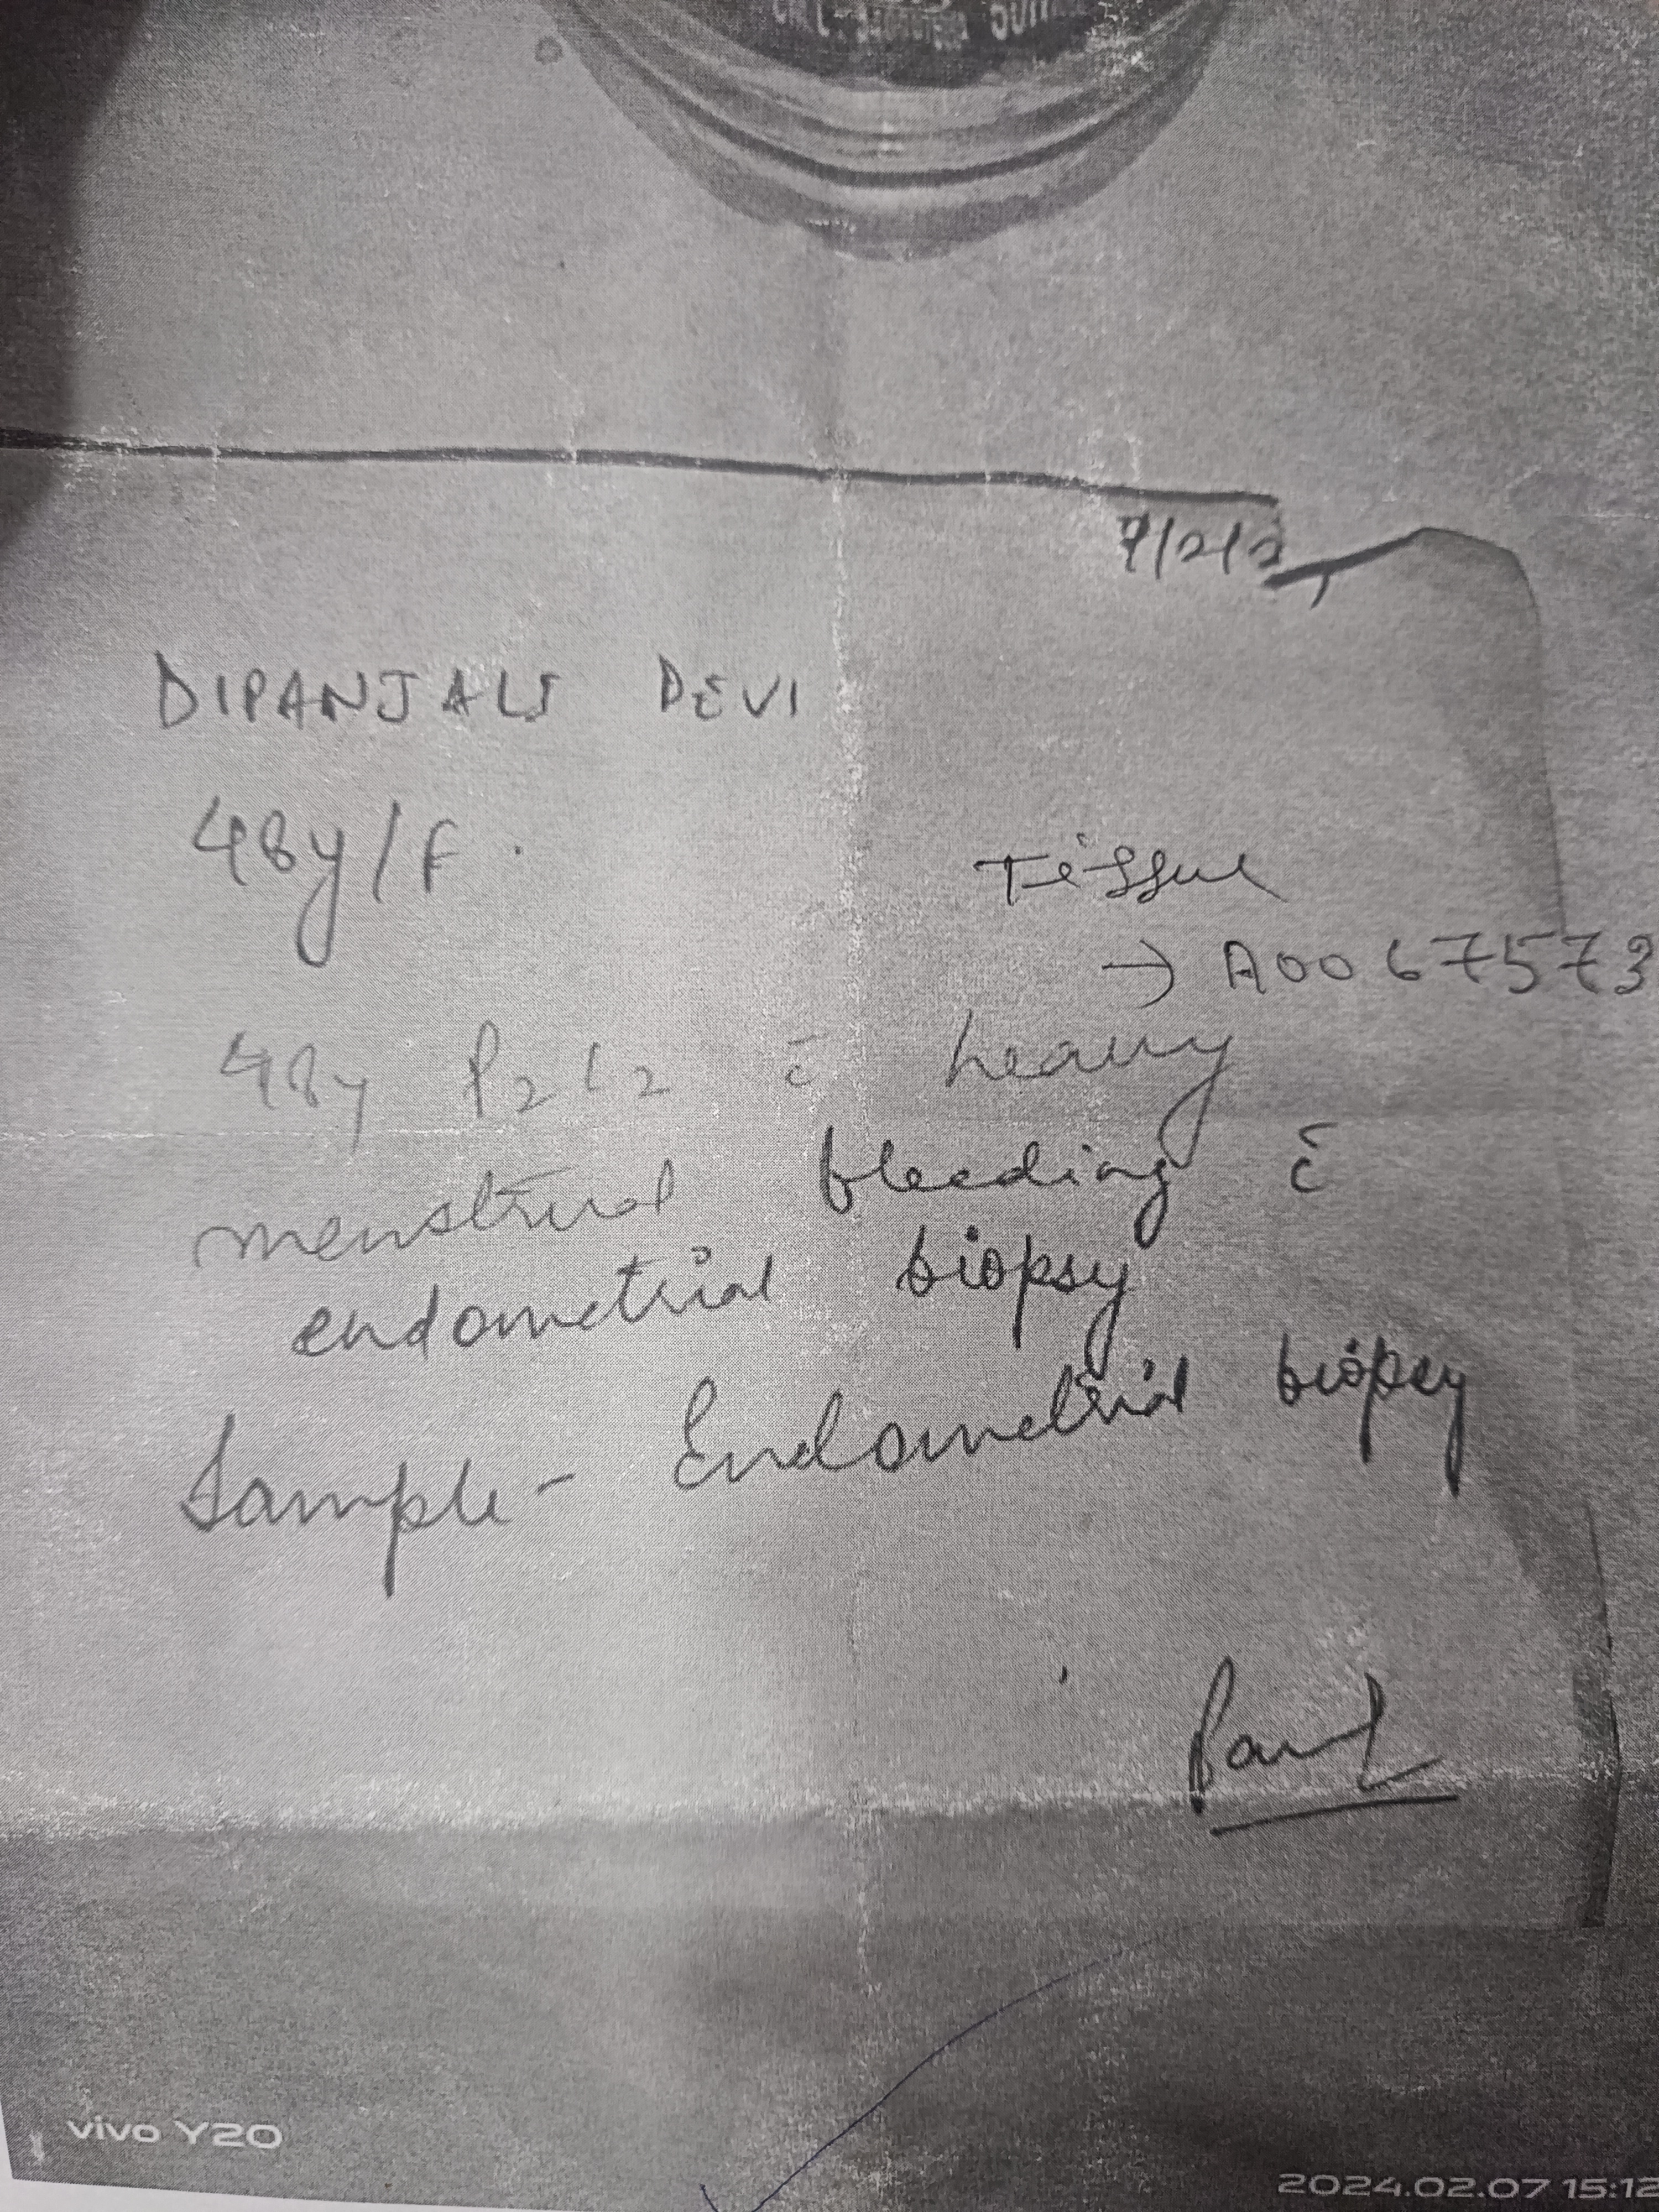 7/2/2
DIPANJALI DEVI
48y/F.
Tissue
→ A0067573
48y P2L2 c̄ heavy
menstrual bleeding c̄
endometrial biopsy
Sample - Endometrial biopsy
Paul
vivo Y20
2024.02.07 15:12